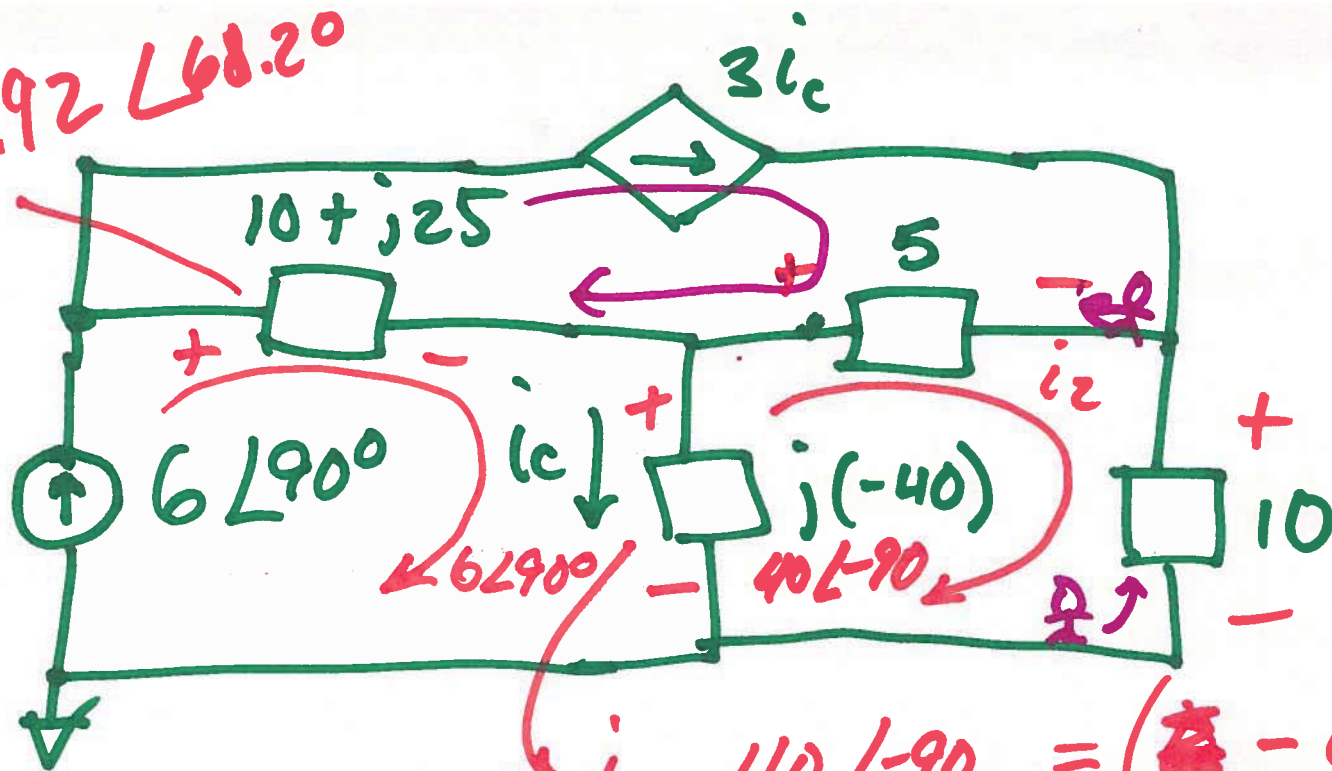 .92 ∠68.2°
3ic
10 + j25
5
+ −
+ −
i2
6∠90°
ic
+
j(-40)
+
10
6∠90°
−
40∠-90
−
i 40∠-90 = ( -